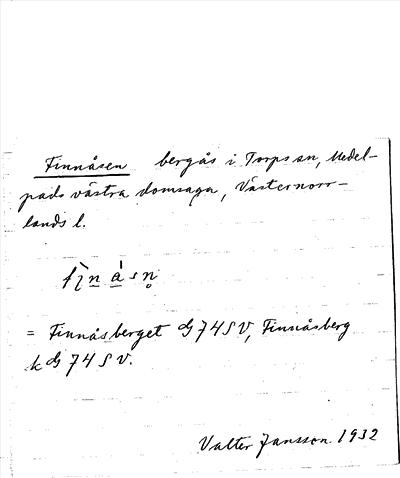 Finnåsen bergås i Torps sn, Medel-
pads västra domsaga, Västernorr-
lands l.
= Finnåsberget G 74 S V, Finnåsberg
k G 74 S V.
Valter Jansson. 1932